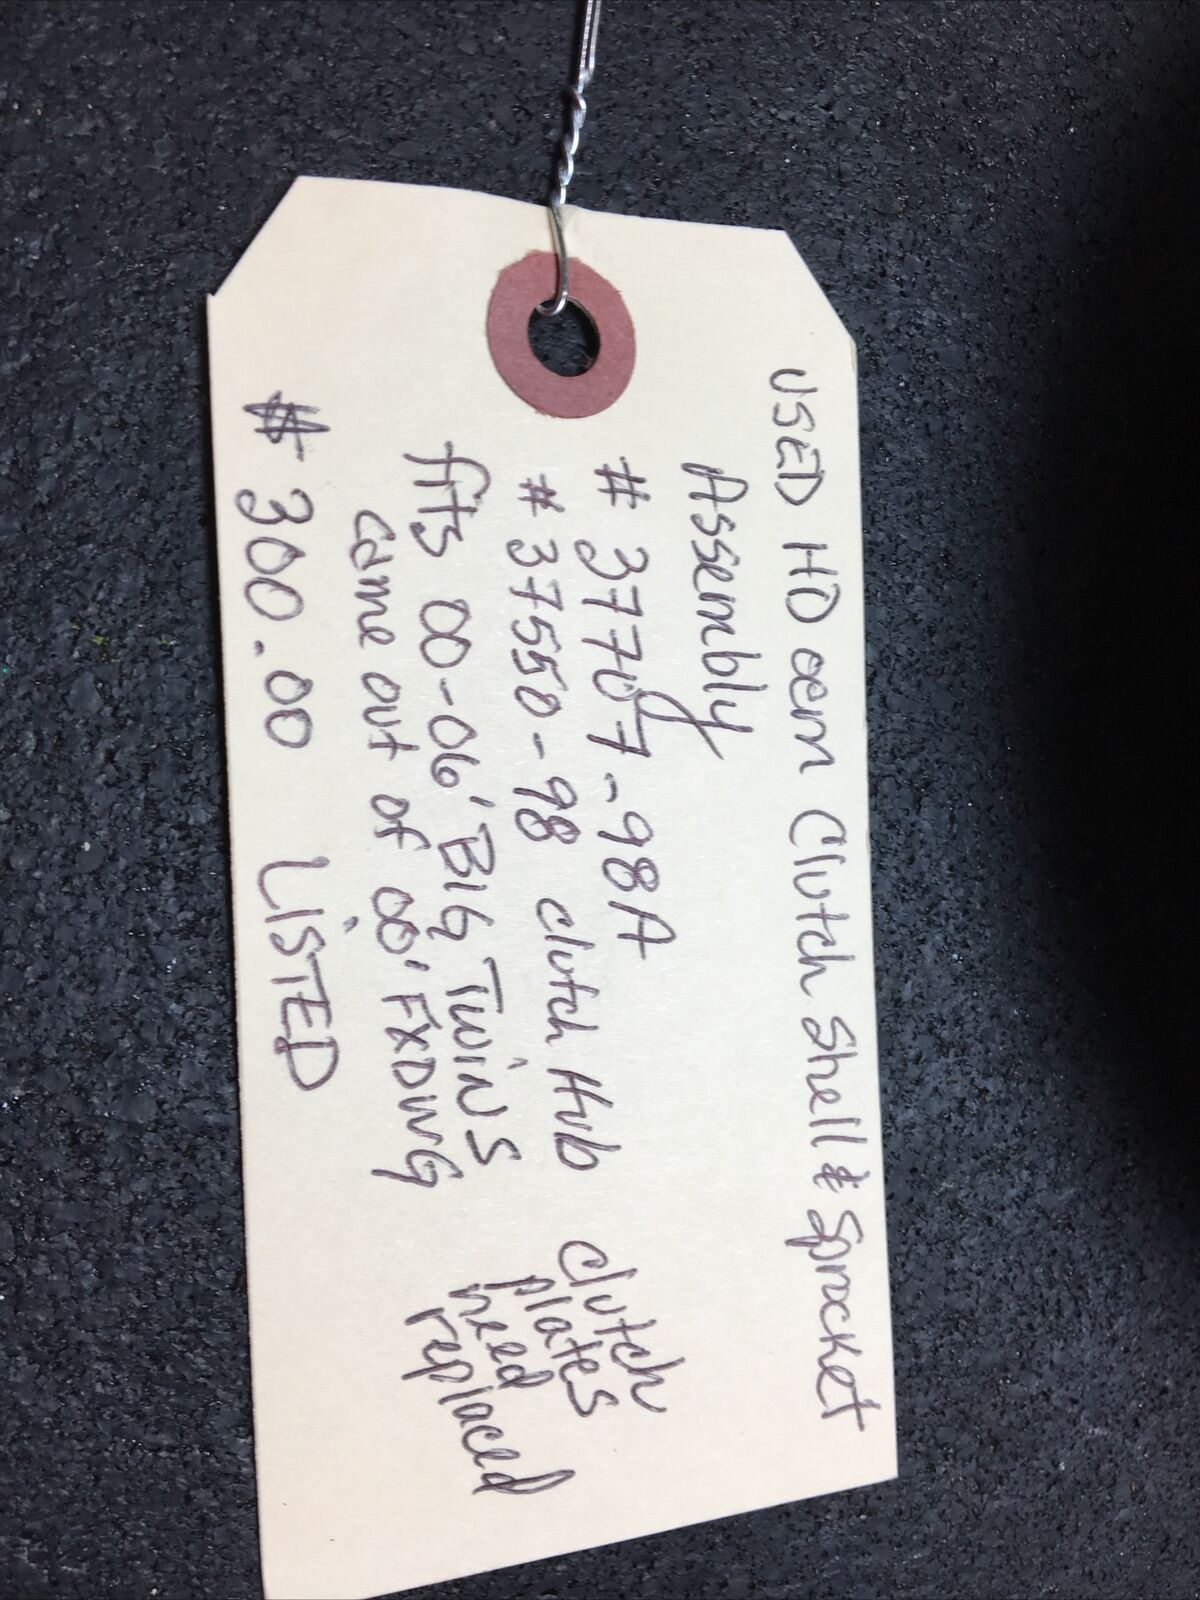 USED HD oem Clutch Shell & Sprocket
Assembly
# 37707-98A
# 37550-98 clutch Hub
fits 00-06' BIG TWINS
came out of 00' FXDWG
clutch
plates
need
replaced
$ 300.00 LISTED